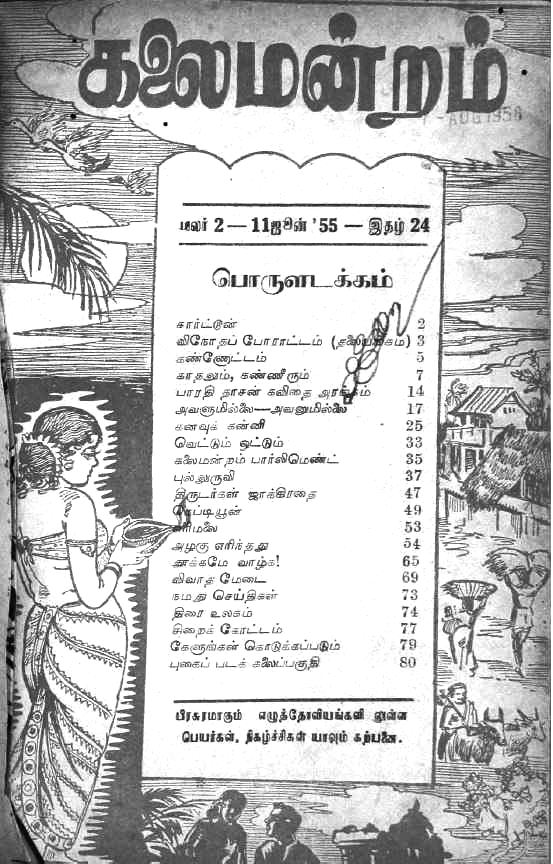 கலைமன்றம்
AUG 1956
மலர் 2 — 11 ஜூன் '55 — இதழ் 24
பொருளடக்கம்
கார்ட்டூன் 2
விநோதப் போராட்டம் (தலையங்கம்) 3
கண்ணோட்டம் 5
காதலும், கண்ணீரும் 7
பாரதி தாசன் கவிதை அரங்கம் 14
அவளுமில்லை—அவனுமில்லை 17
கனவுக் கன்னி 25
வெட்டும் ஒட்டும் 33
கலைமன்றம் பார்லிமெண்ட் 35
புல்லுருவி 37
திருடர்கள் ஜாக்கிரதை 47
நெப்டியூன் 49
எரிமலை 53
அழகு எரிந்தது 54
தூக்கமே வாழ்க! 65
விவாத மேடை 69
நமது செய்திகள் 73
திரை உலகம் 74
சிறைக் கோட்டம் 77
கேளுங்கள் கொடுக்கப்படும் 79
புகைப் படக் கலைப்பகுதி 80
பிரசுரமாகும் எழுத்தோவியங்களி லுள்ள
பெயர்கள், நிகழ்ச்சிகள் யாவும் கற்பனை.